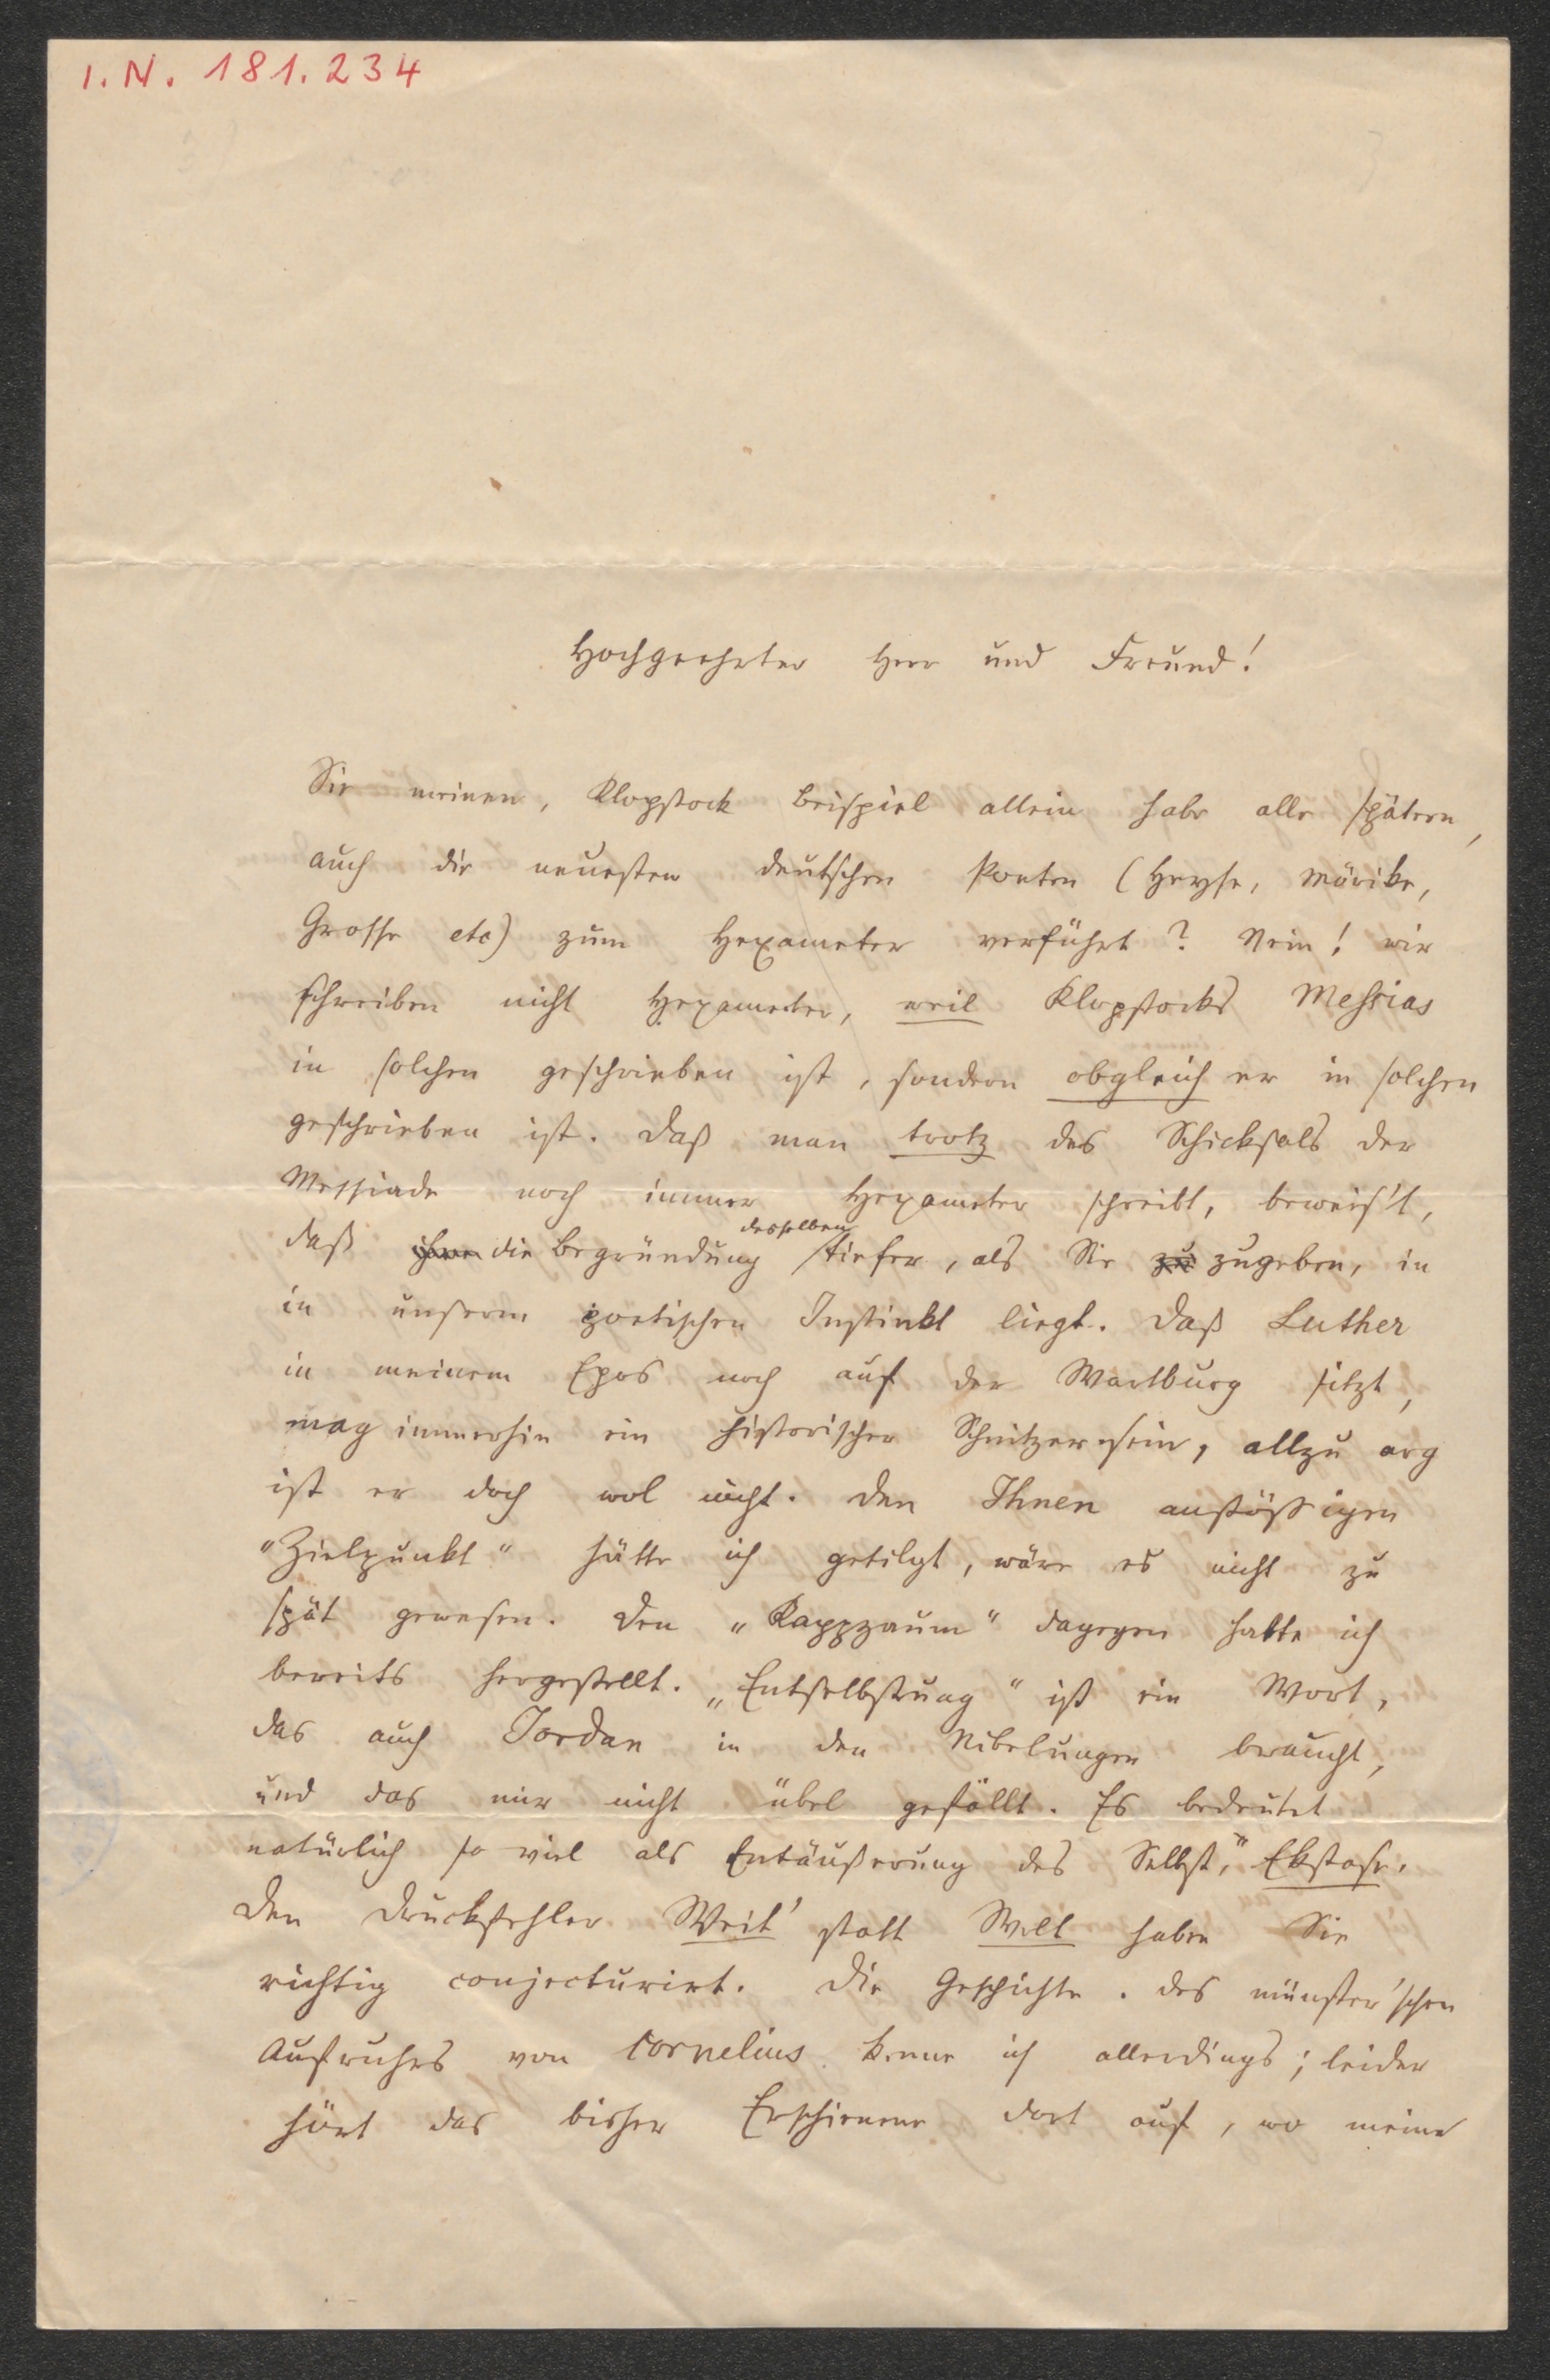 I. N. 181.234
Hochgeehrter Herr und Freund!
Sie meinen, Klopstock Beispiel allein habe alle spätern,
auch die neuesten deutschen Poeten (Heyse, Mörike,
Grosse etc) zum Hexameter verführt? Nein! wir
schreiben nicht Hexameter, weil Klopstocks Messias
in solchen geschrieben ist, sondern obgleich er in solchen
geschrieben ist. Daß man trotz des Schicksals der
Messiade noch immer Hexameter schreibt, beweis't,
desselben
daß die Begründung tiefer, als Sie zu zugeben, in
in unserm poetischen Instinkt liegt. Daß Luther
in meinem Epos noch auf der Wartburg sitzt,
mag immerhin ein historischer Schnitzer sein, allzu arg
ist er doch wol nicht. Den Ihnen anstößigen
"Zielpunkt" hätte ich getilgt, wäre es nicht zu
spät gewesen. Den „Kappzaum" dagegen hatte ich
bereits hergestellt. „Entselbstung" ist ein Wort,
das auch Jordan in den Nibelungen braucht,
und das mir nicht übel gefällt. Es bedeutet
natürlich so viel als Entäußerung des Selbst," Ekstase.
Den Druckfehler Weit' statt Welt haben Sie
richtig conjecturirt. Die Geschichte des münster'schen
Aufruhrs von Cornelius kenne ich allerdings; leider
hört das bisher Erschienene dort auf, wo meine